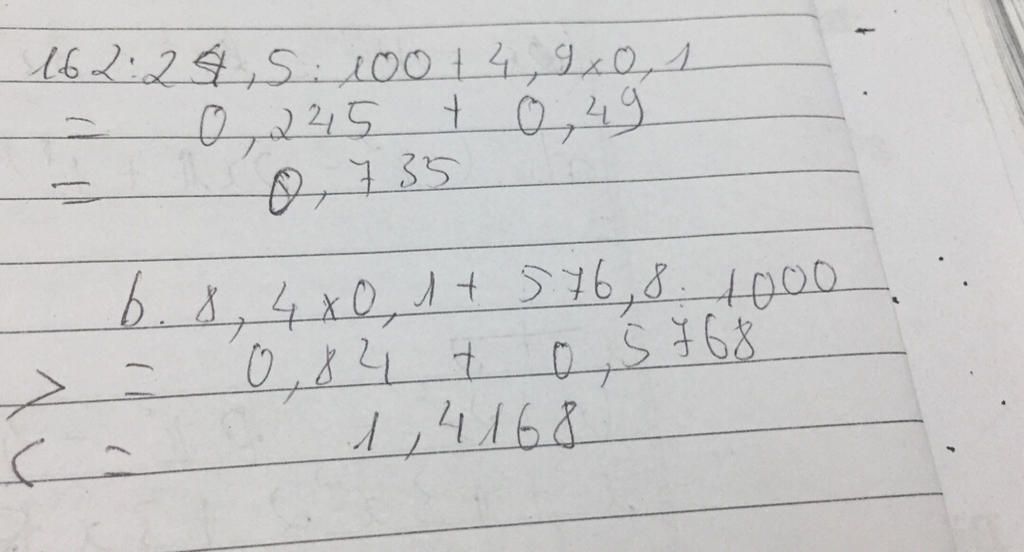 162: 24,5: 100 + 4,9x0,1
= 0,245 + 0,49
= 0,735
b. 8,4x0,1 + 576,8: 1000
> = 0,84 + 0,5768
< = 1,4168